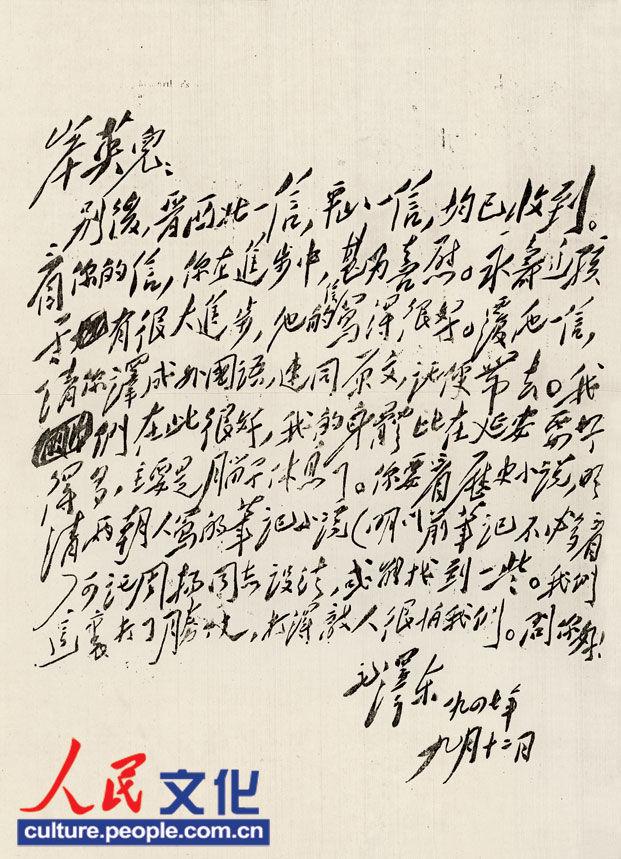 岸英兒：
別後，晋西北一信，平山一信，均已收到。
看你的信，你在進步中，甚为喜慰。永壽这孩
子有很大進步，他的信寫得很好。復他一信，
請你譯成外國語，連同原文，託便带去。我
們在此很好，我的身體比在延安要好
得多，主要是腦子休息了。你要看歷史小説，明
清兩朝人寫的筆記小説（明以前筆記不必多看），
可託周揚同志設法，或能找到一些。我們
這裏打了勝仗，打得敵人很怕我們。問你好！
毛澤东 一九四七年
九月十二日
人民文化
culture.people.com.cn